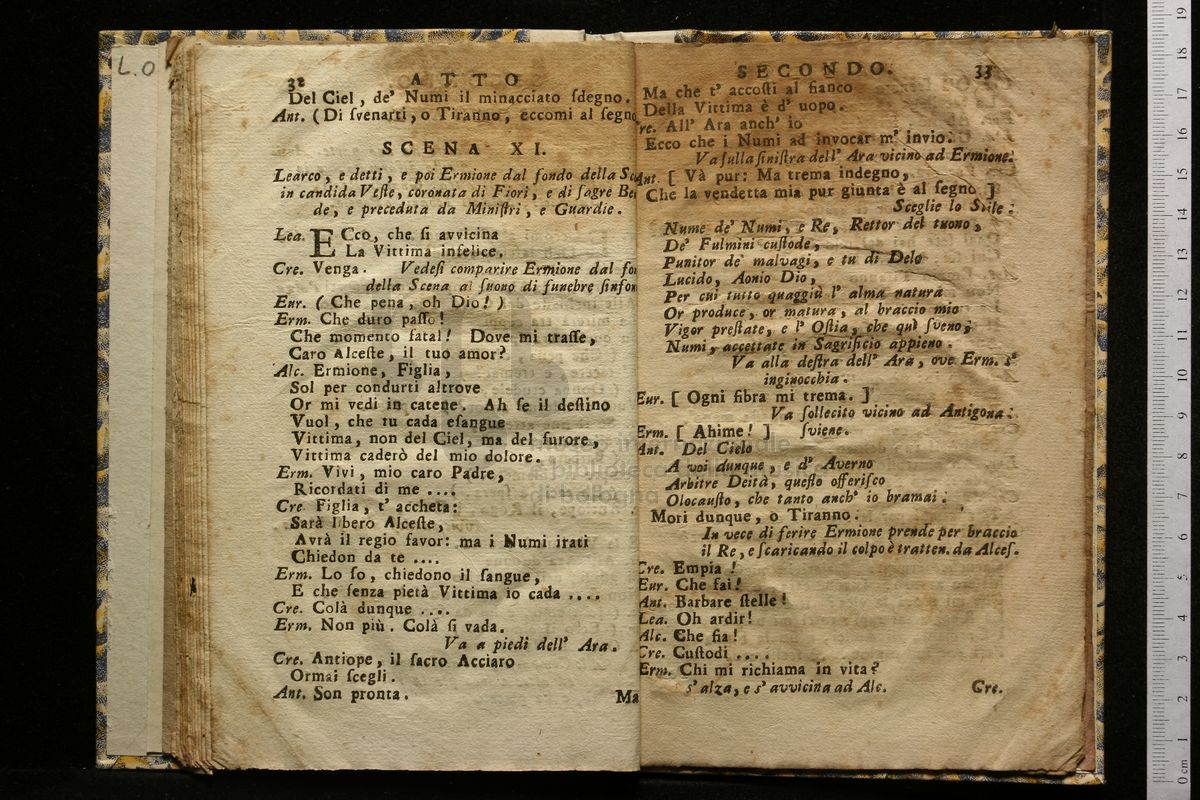 L.O
32 ATTO
Del Ciel, de' Numi il minacciato ſdegno.
Ant. (Di ſvenarti, o Tiranno, eccomi al ſegno
SCENA XI.
Learco, e detti, e poi Ermione dal fondo della Sc
in candida Veſte, coronata di Fiori, e di ſagre Ben
de, e preceduta da Miniſtri, e Guardie.
Lea. ECco, che ſi avvicina
La Vittima infelice.
Cre. Venga. Vedeſi comparire Ermione dal fon
della Scena al ſuono di funebre ſinfon
Eur. (Che pena, oh Dio!)
Erm. Che duro paſſo!
Che momento fatal! Dove mi traſſe,
Caro Alceſte, il tuo amor?
Alc. Ermione, Figlia,
Sol per condurti altrove
Or mi vedi in catene. Ah ſe il deſtino
Vuol, che tu cada eſangue
Vittima, non del Ciel, ma del furore,
Vittima caderò del mio dolore.
Erm. Vivi, mio caro Padre,
Ricordati di me ....
Cre. Figlia, t' accheta:
Sarà libero Alceſte,
Avrà il regio favor: ma i Numi irati
Chiedon da te ....
Erm. Lo ſo, chiedono il ſangue,
E che ſenza pietà Vittima io cada ....
Cre. Colà dunque ....
Erm. Non più. Colà ſi vada.
Va a piedi dell' Ara.
Cre. Antiope, il ſacro Acciaro
Ormai ſcegli.
Ant. Son pronta.
Ma
SECONDO. 33
Ma che t' accoſti al fianco
Della Vittima è d' uopo.
re. All' Ara anch' io
Ecco che i Numi ad invocar m' invio.
Va ſulla ſiniſtra dell' Ara vicino ad Ermione.
Ant. [ Và pur: Ma trema indegno,
Che la vendetta mia pur giunta è al ſegno ]
Sceglie lo Stile:
Nume de' Numi, e Re, Rettor del tuono,
De' Fulmini cuſtode,
Punitor de' malvagi, e tu di Delo
Lucido, Aonio Dio,
Per cui tutto quaggiù l' alma natura
Or produce, or matura, al braccio mio
Vigor preſtate, e l' Oſtia, che quì ſveno,
Numi, accettate in Sagrificio appieno.
Va alla deſtra dell' Ara, ove Erm. s'
inginocchia.
Eur. [ Ogni fibra mi trema. ]
Va ſollecito vicino ad Antigona:
Erm. [ Ahime! ] ſviene.
Ant. Del Cielo
A voi dunque, e d' Averno
Arbitre Deità, queſto offeriſco
Olocauſto, che tanto anch' io bramai:
Mori dunque, o Tiranno.
In vece di ferire Ermione prende per braccio
il Re, e ſcaricando il colpo è tratten. da Alceſ.
Cre. Empia!
Eur. Che fai!
Ant. Barbare ſtelle!
Lea. Oh ardir!
Alc. Che fia!
Cre. Cuſtodi ....
Erm. Chi mi richiama in vita?
s' alza, e s' avvicina ad Alc. Cre.
0 cm 1 2 3 4 5 6 7 8 9 10 11 12 13 14 15 16 17 18 19